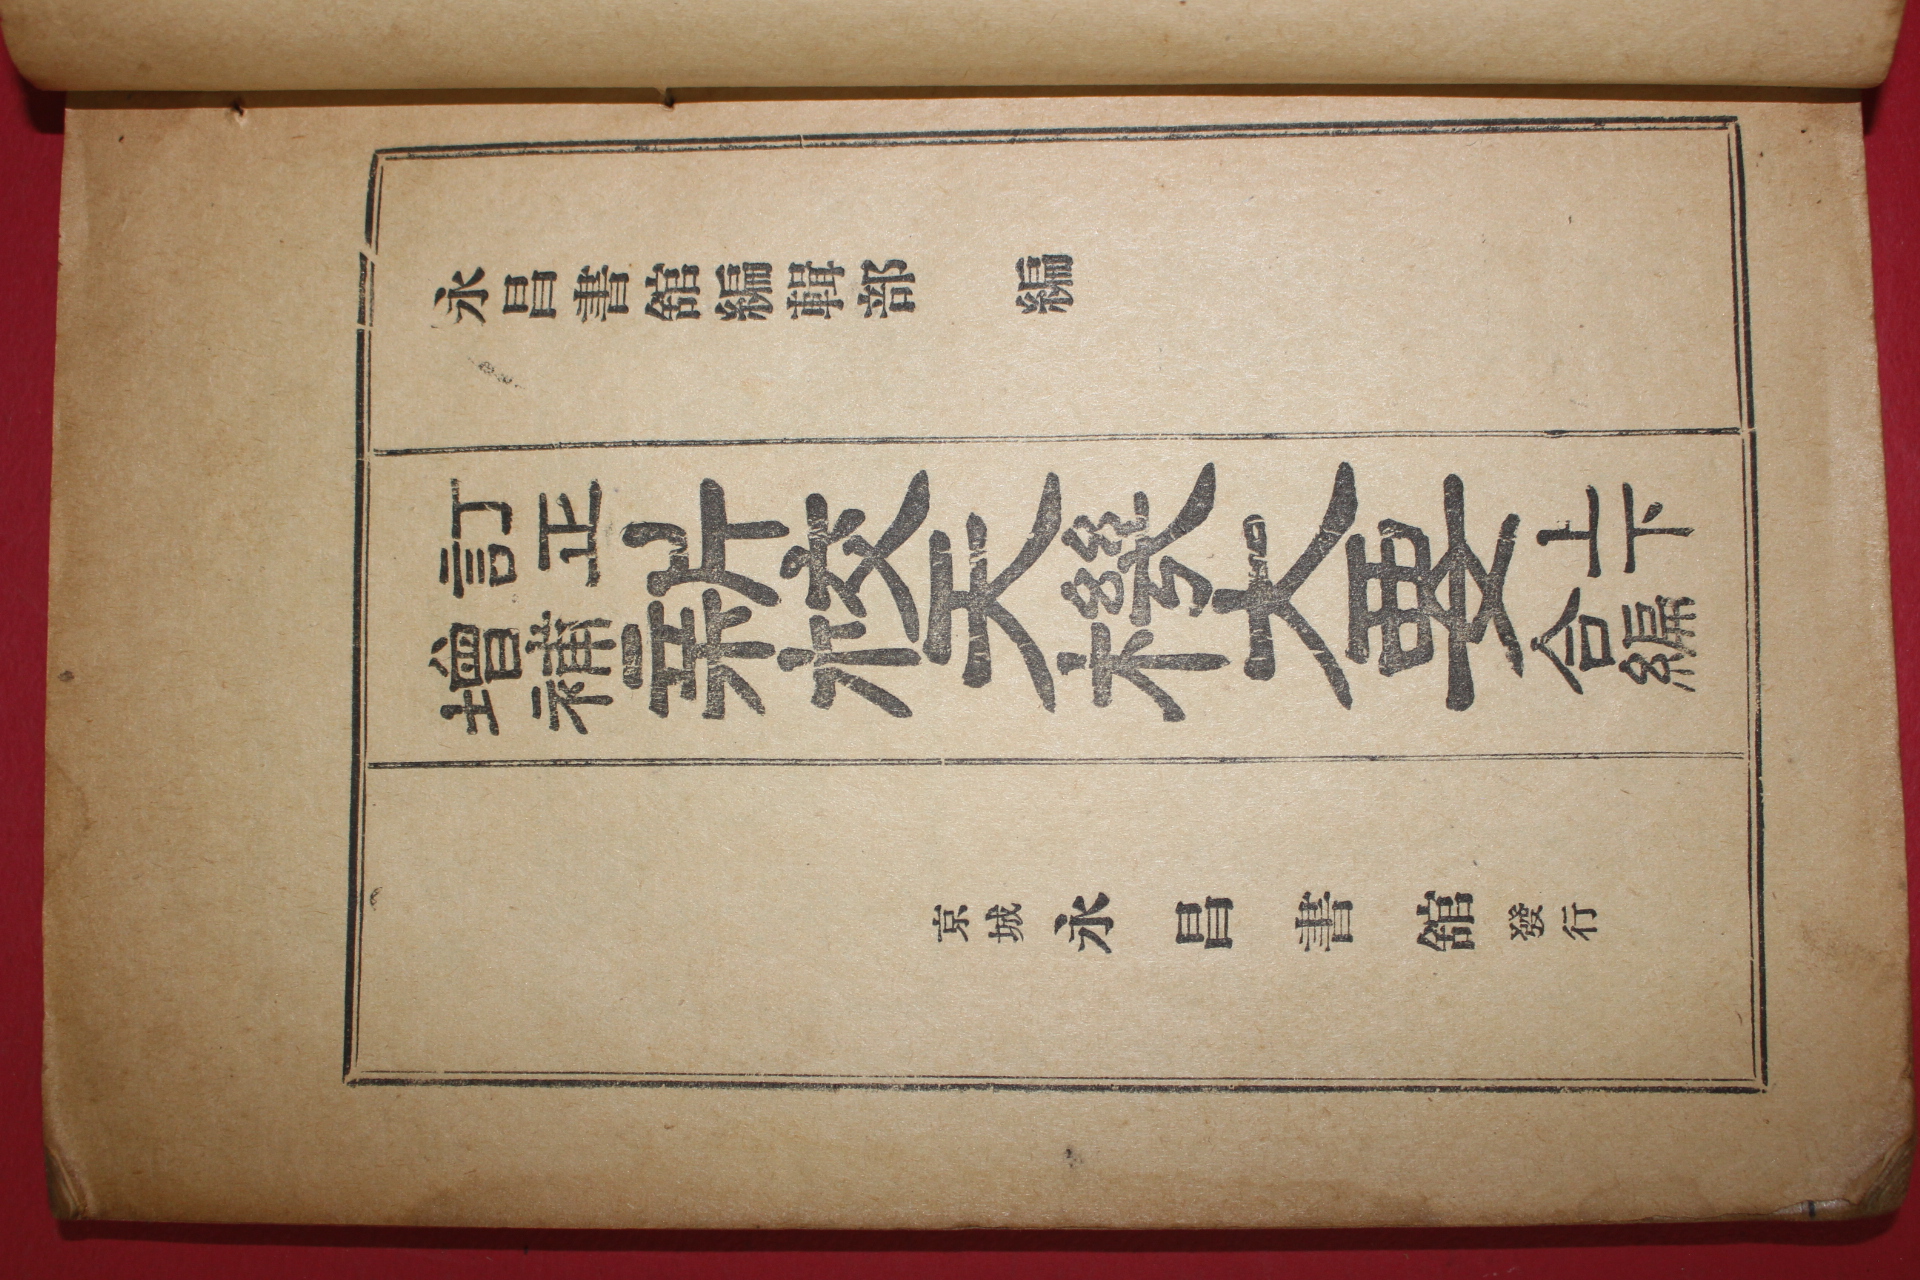 永昌書舘編輯部 編
訂正
增補
新校天機大要
上下
合編
京城 永昌書舘 發行